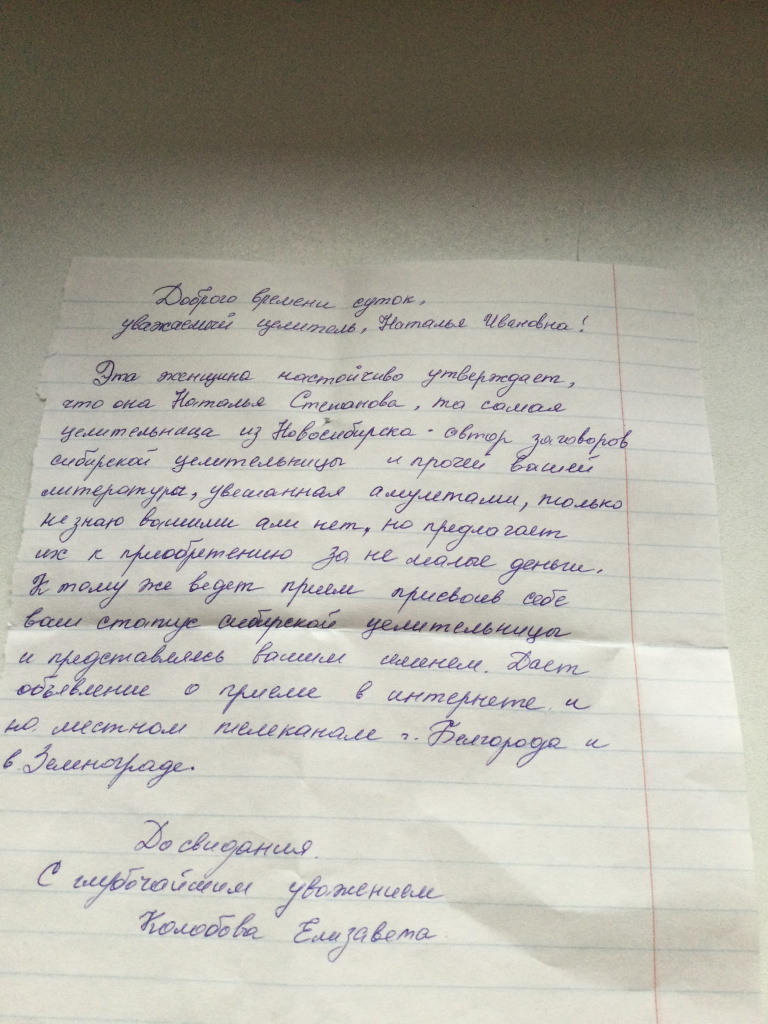 Доброго времени суток,
уважаемый целитель, Наталья Ивановна!
Эта женщина настойчиво утверждает,
что она Наталья Степанова, та самая
целительница из Новосибирска - автор заговоров
сибирской целительницы и прочей вашей
литературы, увешанная амулетами, только
не знаю вашими али нет, но предлагает
их к приобретению за не малые деньги.
К тому же ведет прием присвоив себе
ваш статус сибирской целительницы
и представляясь вашим именем. Дает
объявление о приеме в интернете и
на местном телеканале г. Белгорода и
в Зеленограде.
До свидания.
С глубочайшим уважением
Колобова Елизавета